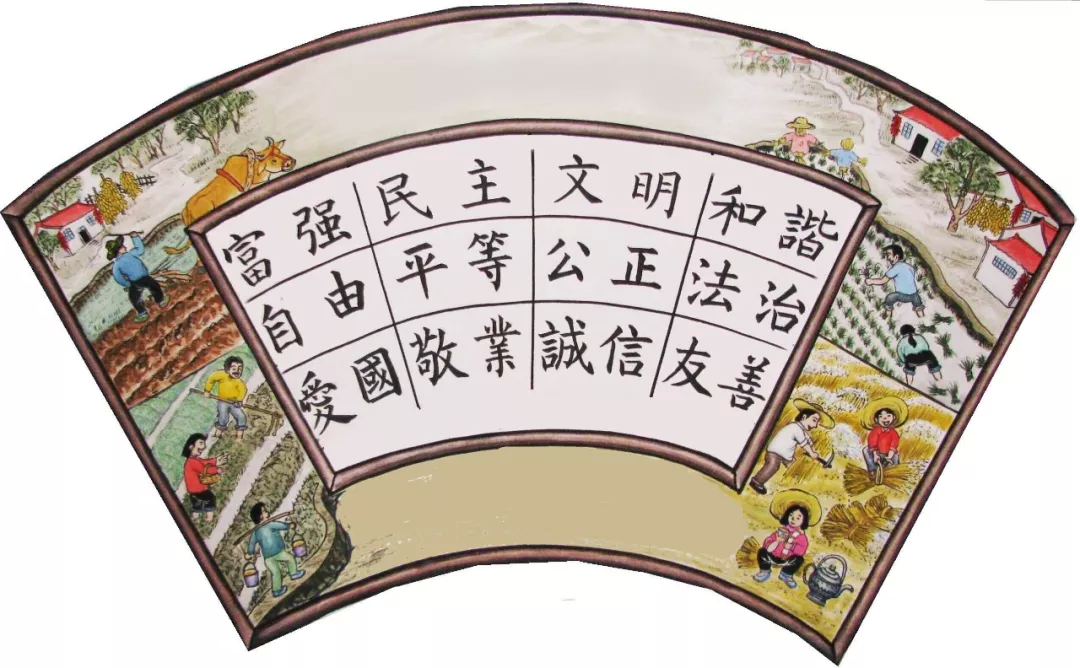 富强 民主 文明 和諧
自由 平等 公正 法治
愛國 敬業 誠信 友善